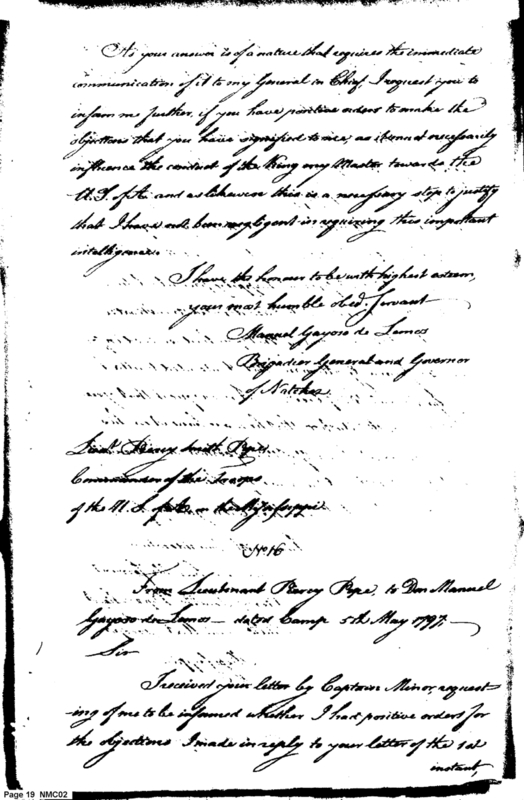 As your answer is of a nature that requires the immediate
communication of it to my General in Chief, I request you to
inform me further, if you have positive orders to make the
objections that you have signified to me, as it must necessarily
influence the conduct of the King my Master towards the
U.S. of A. and as likewise this is a necessary step to justify
that I have not been negligent in requiring this important
intelligence.
I have the honour to be with highest esteem,
your most humble obed. Servant
Manuel Gayoso de Lemos
Brigadier General and Governor
of Natchez
Lieut. Piercy Smith Pope
Commander of the Troops
of the U.S. of A. on the Mississippi
No 16
From Lieutenant Piercy Pope, to Don Manuel
Gayoso de Lemos — dated Camp 5th May 1797.
Sir
I received your letter by Captain Minor, request-
ing of me to be informed whether I had positive orders for
the objections I made in reply to your letter of the 1st
instant,
Page 19 NMC02